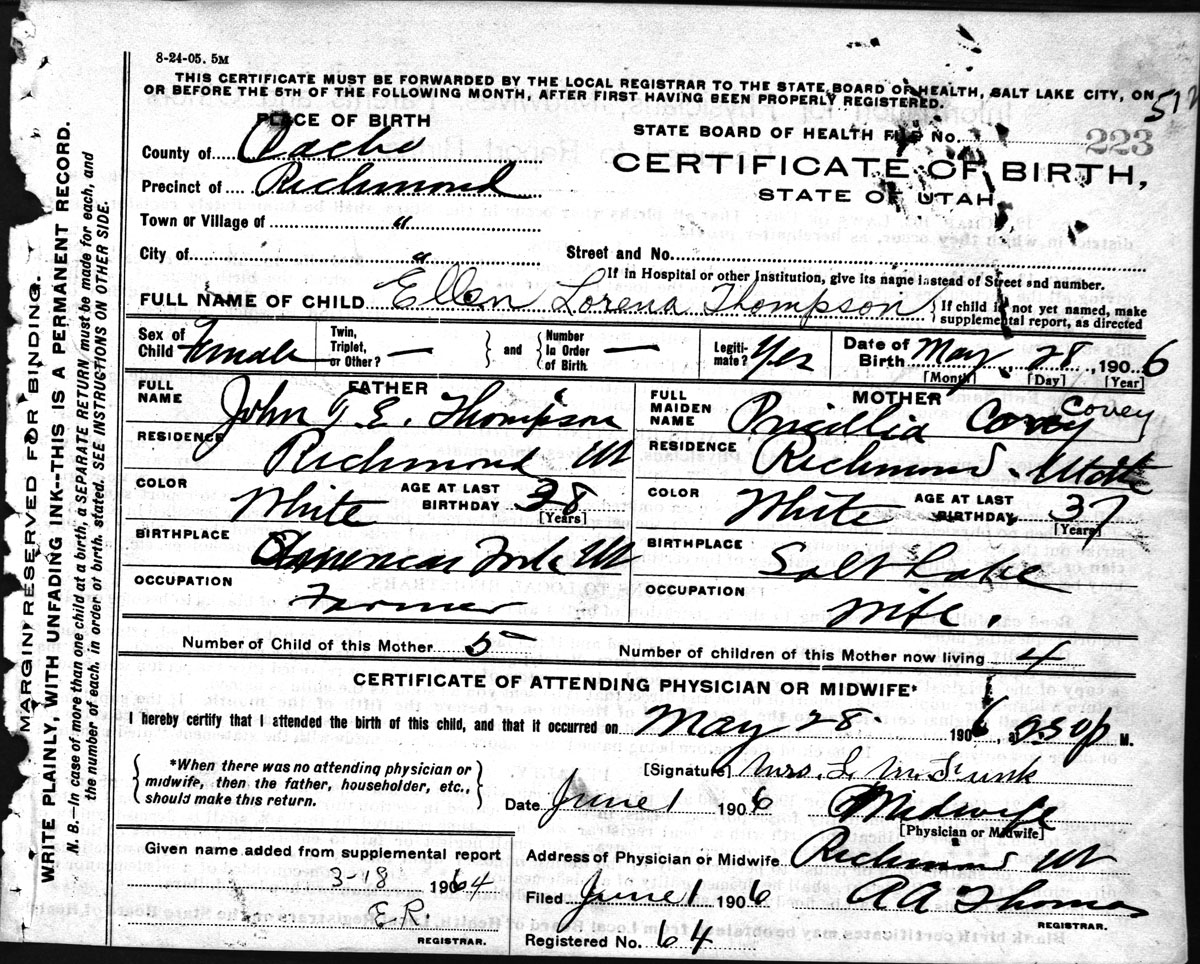 8-24-05. 5M
THIS CERTIFICATE MUST BE FORWARDED BY THE LOCAL REGISTRAR TO THE STATE BOARD OF HEALTH, SALT LAKE CITY, ON
OR BEFORE THE 5TH OF THE FOLLOWING MONTH, AFTER FIRST HAVING BEEN PROPERLY REGISTERED.
PLACE OF BIRTH
STATE BOARD OF HEALTH FILE No. 223
County of Cache
CERTIFICATE OF BIRTH,
Precinct of Richmond
STATE OF UTAH
Town or Village of "
City of "
Street and No.
If in Hospital or other Institution, give its name instead of Street and number.
FULL NAME OF CHILD Ellen Lorena Thompson { If child is not yet named, make
supplemental report, as directed
Sex of Child Female Twin, Triplet, or Other? — } and { Number In Order of Birth — Legiti-mate? Yes Date of Birth May 28, 1906
[Month] [Day] [Year]
FATHER
FULL NAME John T. E. Thompson
RESIDENCE Richmond Ut
COLOR White AGE AT LAST BIRTHDAY 38 [Years]
BIRTHPLACE American Fork Ut
OCCUPATION Farmer
MOTHER
FULL MAIDEN NAME Pricillia Covey Covey
RESIDENCE Richmond Utah
COLOR White AGE AT LAST BIRTHDAY 37 [Years]
BIRTHPLACE Salt Lake
OCCUPATION Wife
Number of Child of this Mother 5 Number of children of this Mother now living 4
CERTIFICATE OF ATTENDING PHYSICIAN OR MIDWIFE*
I hereby certify that I attended the birth of this child, and that it occurred on May 28 1906, at 2.50 p M.
{ *When there was no attending physician or
midwife, then the father, householder, etc.,
should make this return. }
[Signature] Mrs. L M Funk
Date June 1 1906 Midwife
[Physician or Midwife]
Given name added from supplemental report
3-18 1964
E.R.
REGISTRAR.
Address of Physician or Midwife Richmond Ut
Filed June 1 1906 A A Thomas
REGISTRAR.
Registered No. 64
MARGIN RESERVED FOR BINDING.
WRITE PLAINLY, WITH UNFADING INK—THIS IS A PERMANENT RECORD.
N. B.—In case of more than one child at a birth, a SEPARATE RETURN must be made for each, and
the number of each, in order of birth, stated. SEE INSTRUCTIONS ON OTHER SIDE.